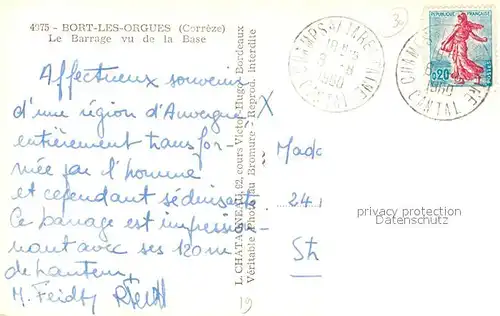 4975 - BORT-LES-ORGUES (Corrèze)
Le Barrage vu de la Base
Affectueux souvenir
d'une région d'Auvergne
entièrement transfor-
mée par l'homme
et cependant séduisante.
Ce barrage est impression-
nant avec ses 120m
de hauteur.
M. Feidt
L. CHATAGNEAU, 62, cours Victor-Hugo, Bordeaux
Véritable Photo au Bromure - Reprod. interdite
CHAMPS-S/TARENTAINE
18H
8-8
1960
CANTAL
RÉPUBLIQUE FRANÇAISE
0,20
CHAMPS
1960
CANTAL
Made
24
St
privacy protection
Datenschutz
19